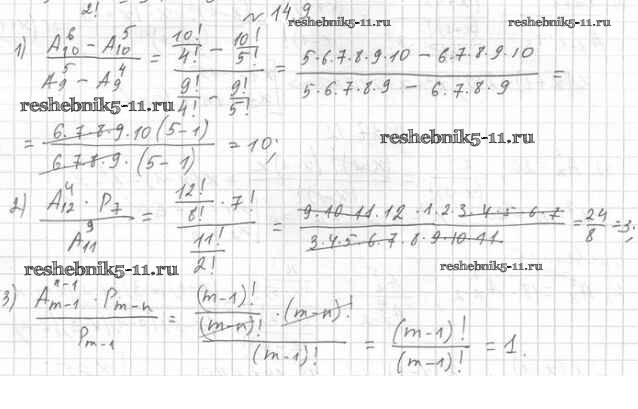 2!
№ 149
reshebnik5-11.ru reshebnik5-11.ru
1) (A_10^6 - A_10^5)/(A_9^5 - A_9^4) = (10!/4! - 10!/5!)/(9!/4! - 9!/5!) = (5·6·7·8·9·10 - 6·7·8·9·10)/(5·6·7·8·9 - 6·7·8·9) =
reshebnik5-11.ru
= (6·7·8·9·10(5-1))/(6·7·8·9·(5-1)) = 10;
reshebnik5-11.ru
2) (A_12^4 · P_7)/(A_11^9) = (12!/8! · 7!)/(11!/2!) = (9·10·11·12·1·2·3·4·5·6·7)/(3·4·5·6·7·8·9·10·11) = 24/8 = 3;
reshebnik5-11.ru reshebnik5-11.ru
3) (A_m-1^n-1 · P_m-n)/(P_m-1) = ((m-1)!/(m-n)! · (m-n)!)/((m-1)!) = (m-1)!/(m-1)! = 1.